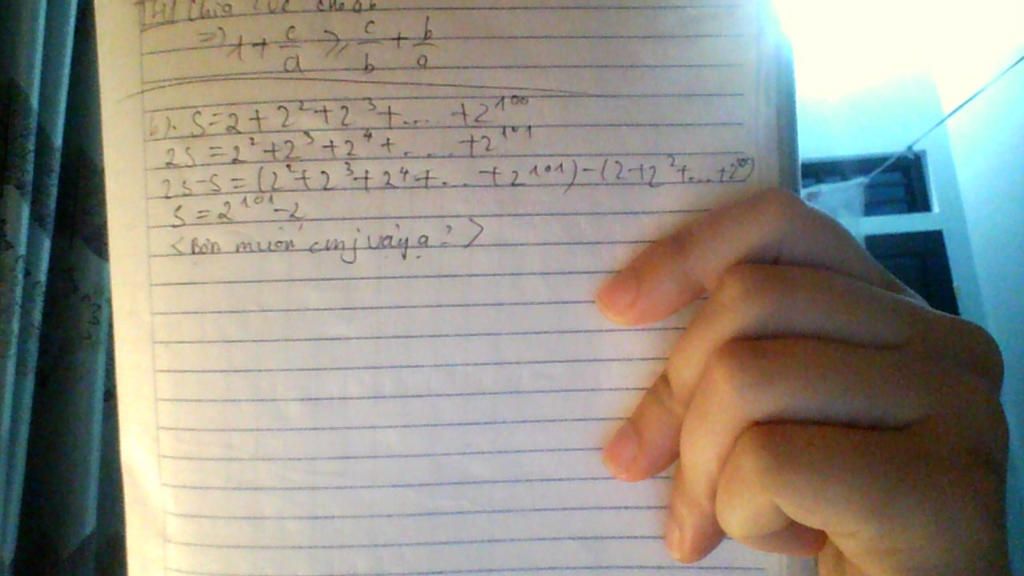 => 1 + c/a ≥ c/b + b/a
b). S = 2 + 2² + 2³ + ... + 2¹⁰⁰
2S = 2² + 2³ + 2⁴ + .... + 2¹⁰¹
2S - S = (2² + 2³ + 2⁴ + ... + 2¹⁰¹) - (2 + 2² + ... + 2¹⁰⁰)
S = 2¹⁰¹ - 2
<Bạn muốn cmj vậy ạ ? >